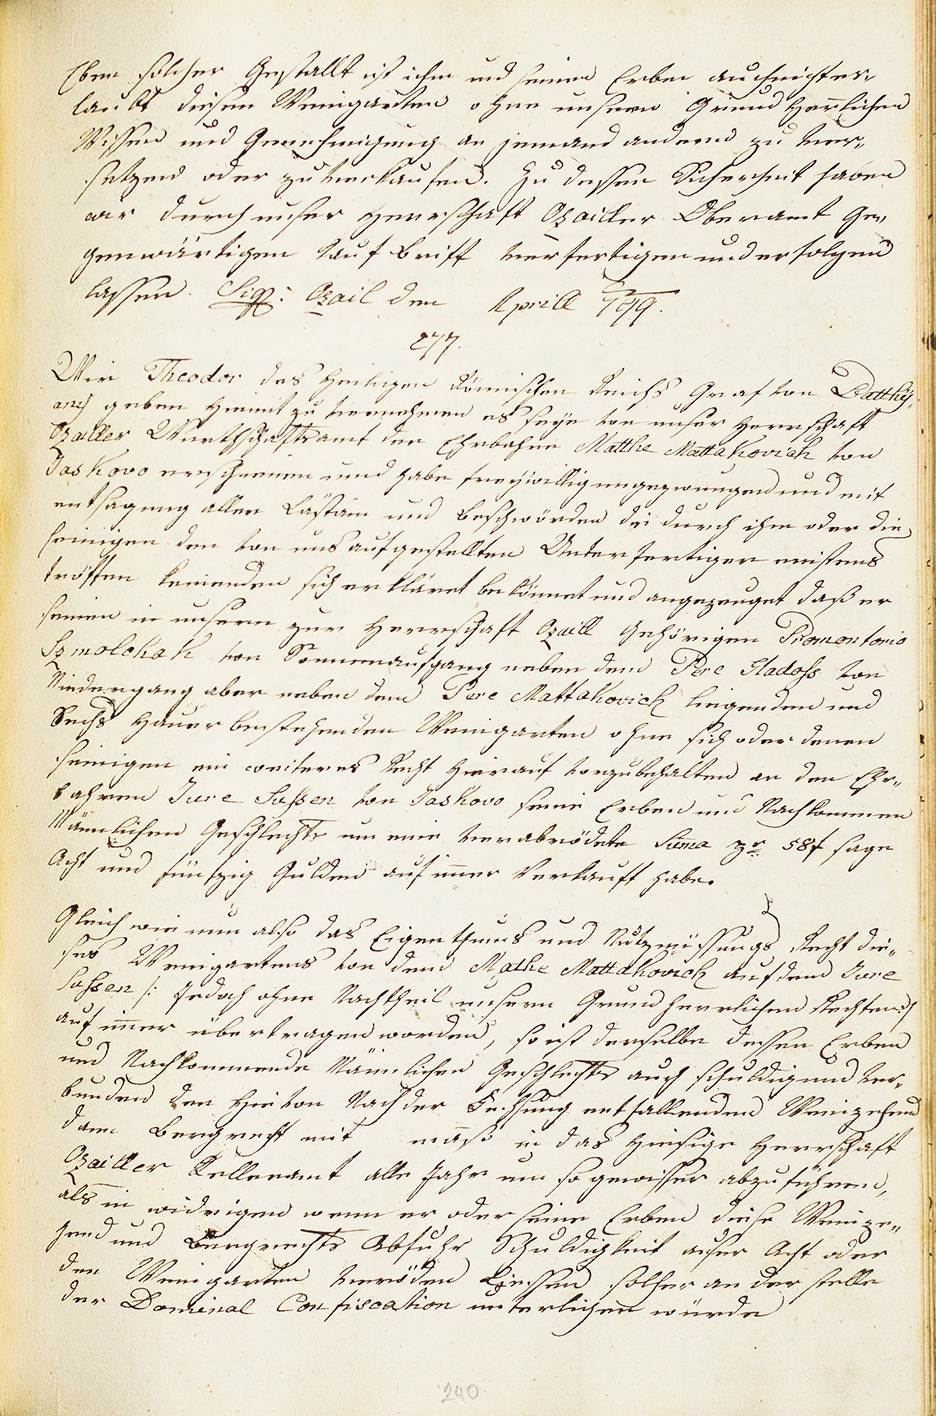 Eben solcher Gestallt ist ihm und seinen Erben auch nicht er„
laubt diesen Weingarten ohne unseren Grund Herrlichen
Wissen und Genehmigung an jemand andern zu ver„
setzend oder zu verkaufend. Zu dessen Sicherheit haben
wir durch unser Herrschaft Ozailler Oberamt Ge„
genwärtigen Kauf Briff verfertigen und erfolgen
lassen. Sig: Ozail den Aprill 799.
277.
Wir Theodor des Heiligen Römischen Reichs Graf von Batthy„
any geben hiemit zu vernehmen es seye vor unser Herrschaft
Ozailler Wirthschaftsamt der Ehrbahre Mathe Mattakovich von
Jaskovo erschienen und habe freywillig ungezwungen und mit
entsagung aller Lästain und Beschwörden die durch ihm oder die
seinigen den von uns aufgestellten Unterfertiger meistens
tröffen könenden sich erkläret bekönnet und angezeuget daß er
seinen in unsern zur Herrschaft Ozaill Gehörigen Promontorio
Szmolchak von Sonnenaufgang neben dem Pere Hadoss von
Niedergang aber neben dem Pere Mattakovich liegenden und
Sechs Hauer bestehenden Weingarten ohne sich oder denen
seinigen ein weiteres Recht hierauf vorzubehalten an den Ehr„
bahren Jure Sussen von Jaskovo seine Erben und Nachkommen
Mänlichen Geschlechts um eine verabrödete Suma pr 58 f sage
Acht und fünfzig Gulden auf immer Verkauft habe.
Gleich wie nun also das Eigenthums und Nutznüssungs Recht die„
ses Weingartens von dem Mathe Mattakovich auf dem Jure
Sussen /: Jedoch ohne Nachtheil unsern Grundherrlichen Rechten :/
auf immer übertragen worden, so ist derselbe dessen Erben
und Nachkommende Männlichen Geschlechts auch schuldig und ver„
bunden den hievon Nach der Fechsung entfallenden Weinzehend
dann Bergrecht mit maß in das hiesige Herrschaft
Ozailler Kelleramt alle Jahr um so gewisser abzuführen,
als in widrigen wenn er oder seine Erben diese Weinze„
hend und Bergrechts Abfuhr Schuldigkeit ausser Acht oder
den Weingarten veröden Liessen solcher an der stelle
der Dominal Confiscation unterlichen würde
240